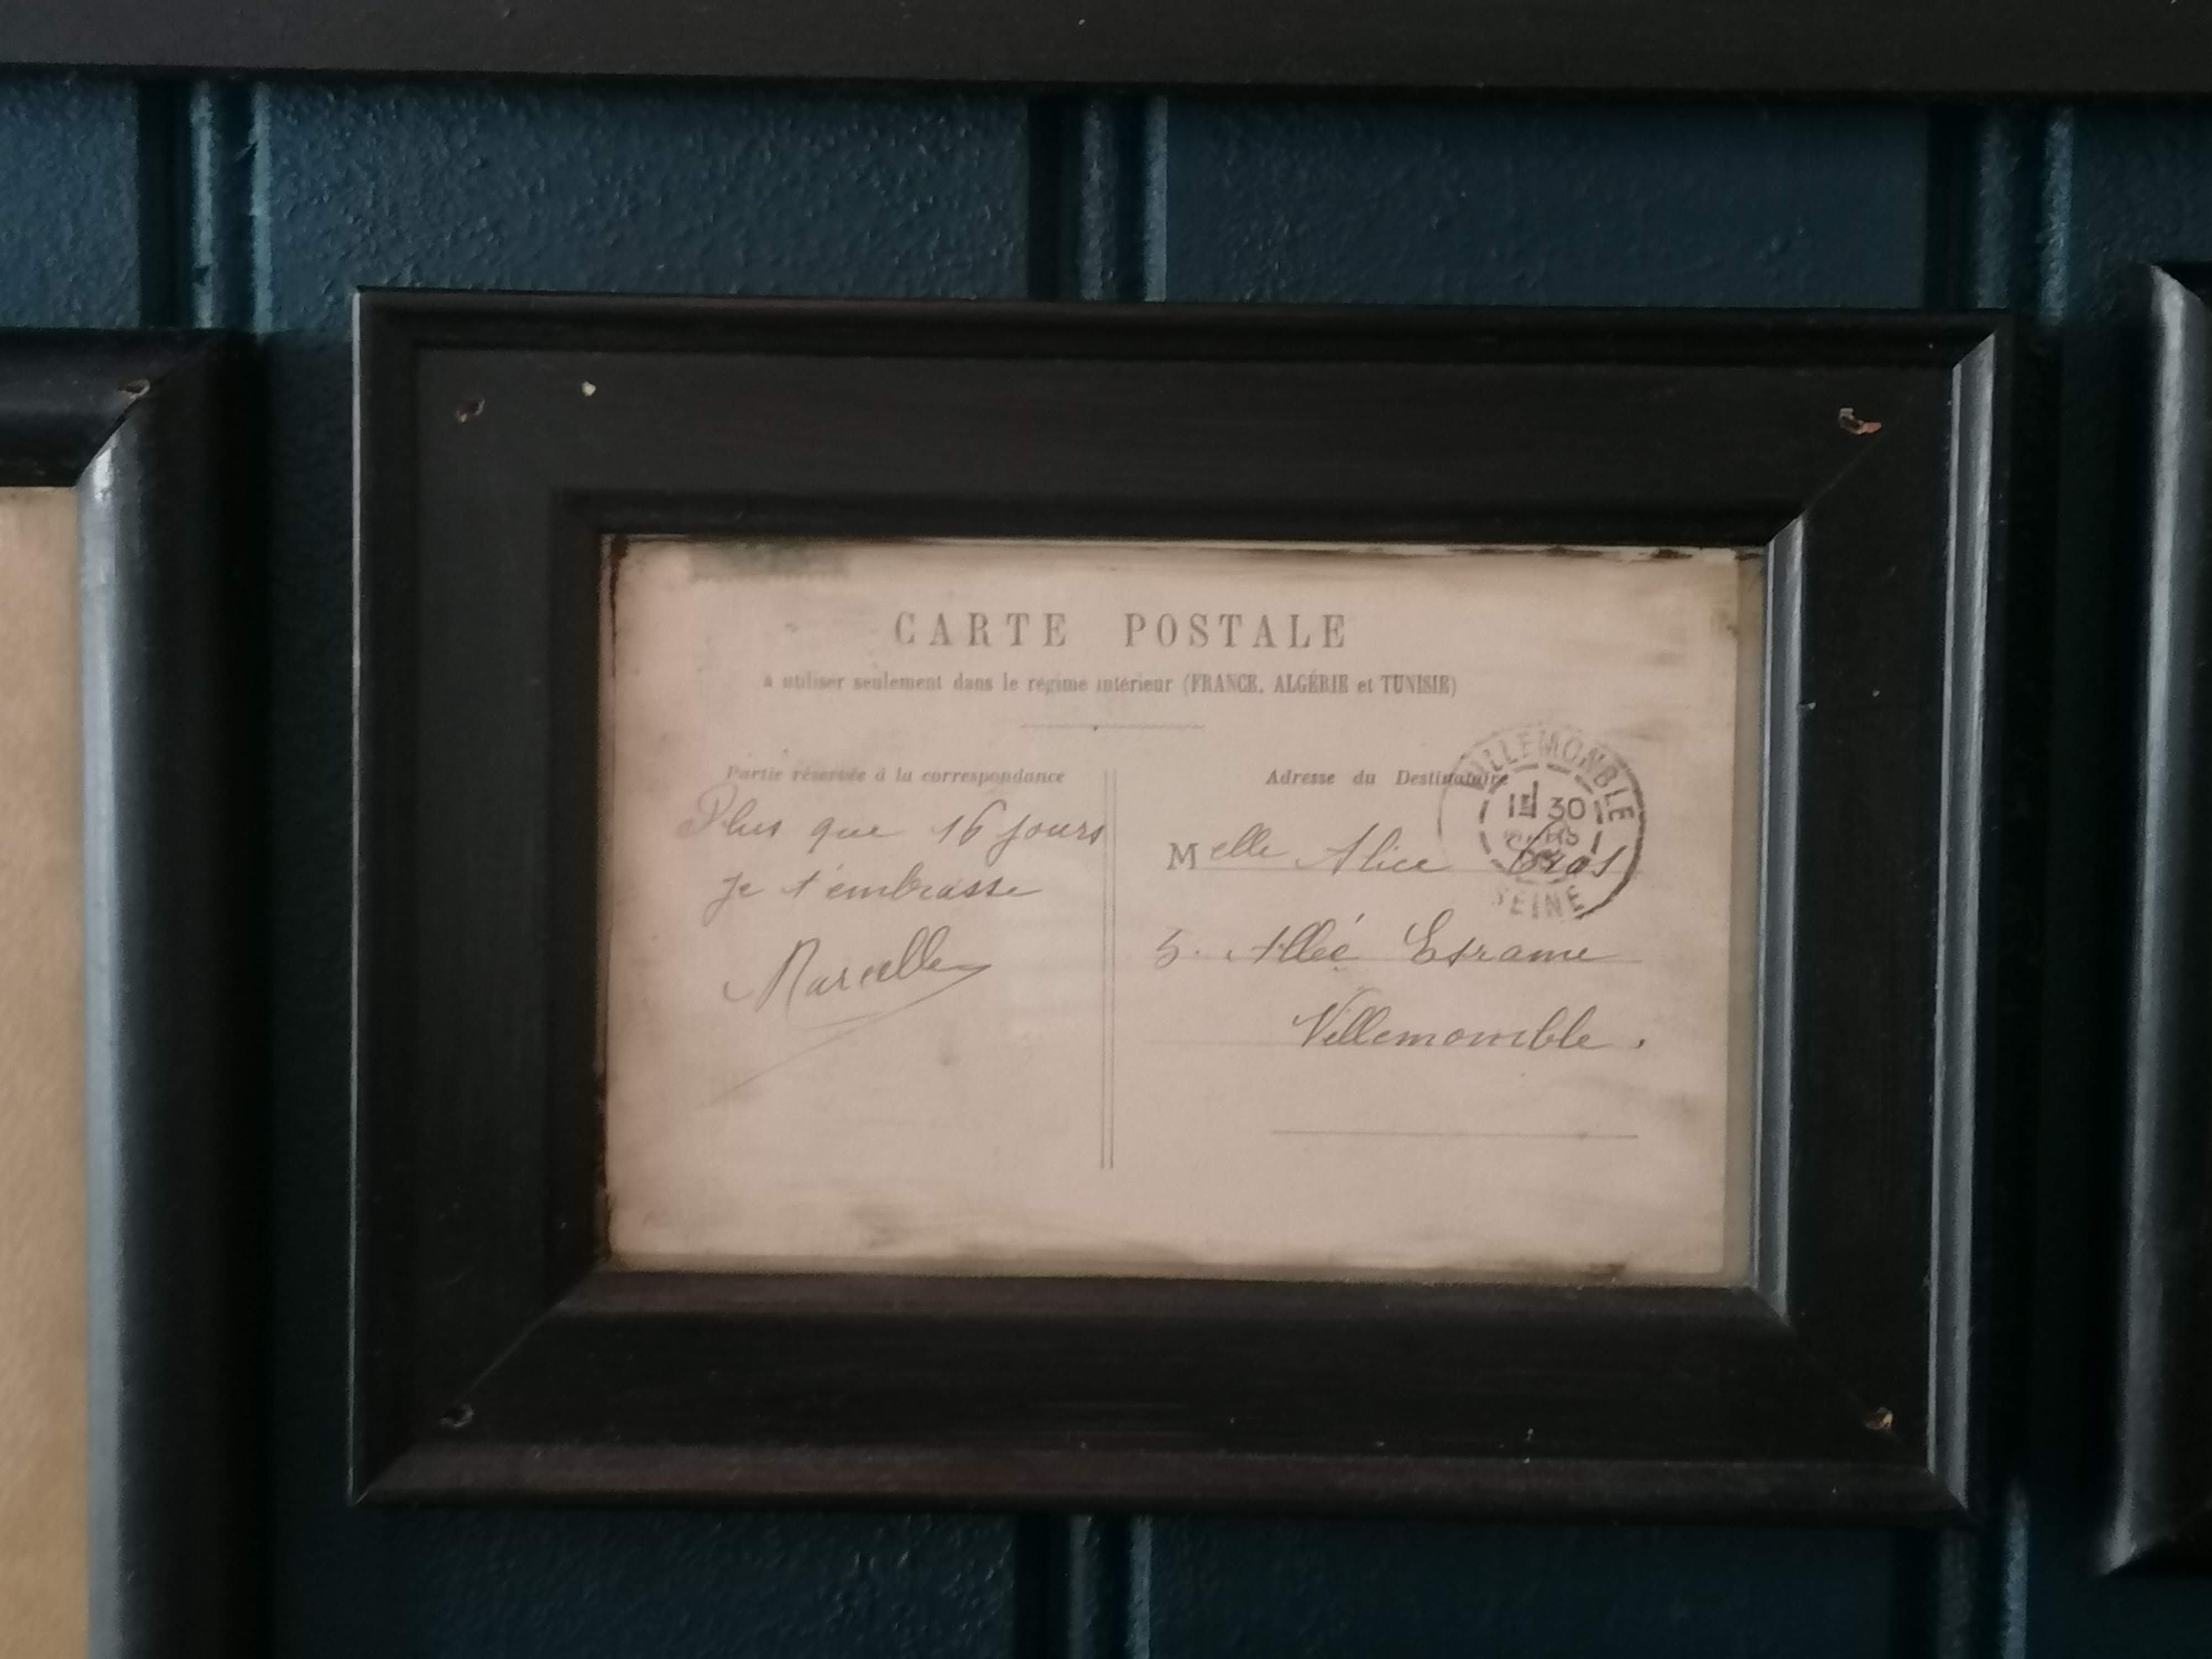 CARTE POSTALE
à utiliser seulement dans le régime intérieur (FRANCE, ALGÉRIE et TUNISIE)
Partie réservée à la correspondance
Plus que 16 jours
je t'embrasse
Marcelle
Adresse du Destinataire
Melle Alice Gros
5. Allée Etrame
Villemomble.
VILLEMONBLE
30
SEINE